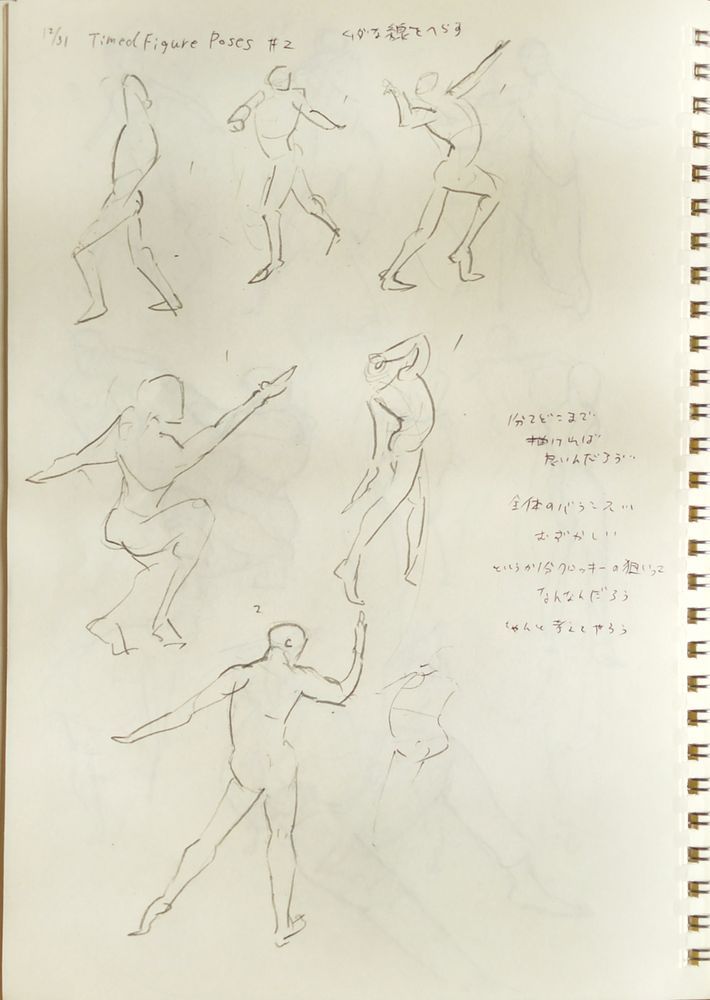 12/31 Timed Figure Poses #2
ムダな線をへらす
1
1
1
1
1
1分でどこまで
描ければ
たいんだろう…
全体のバランス…
むずかしい
というか1分クロッキーの狙いって
なんなんだろう
ちゃんと考えてやろう
2